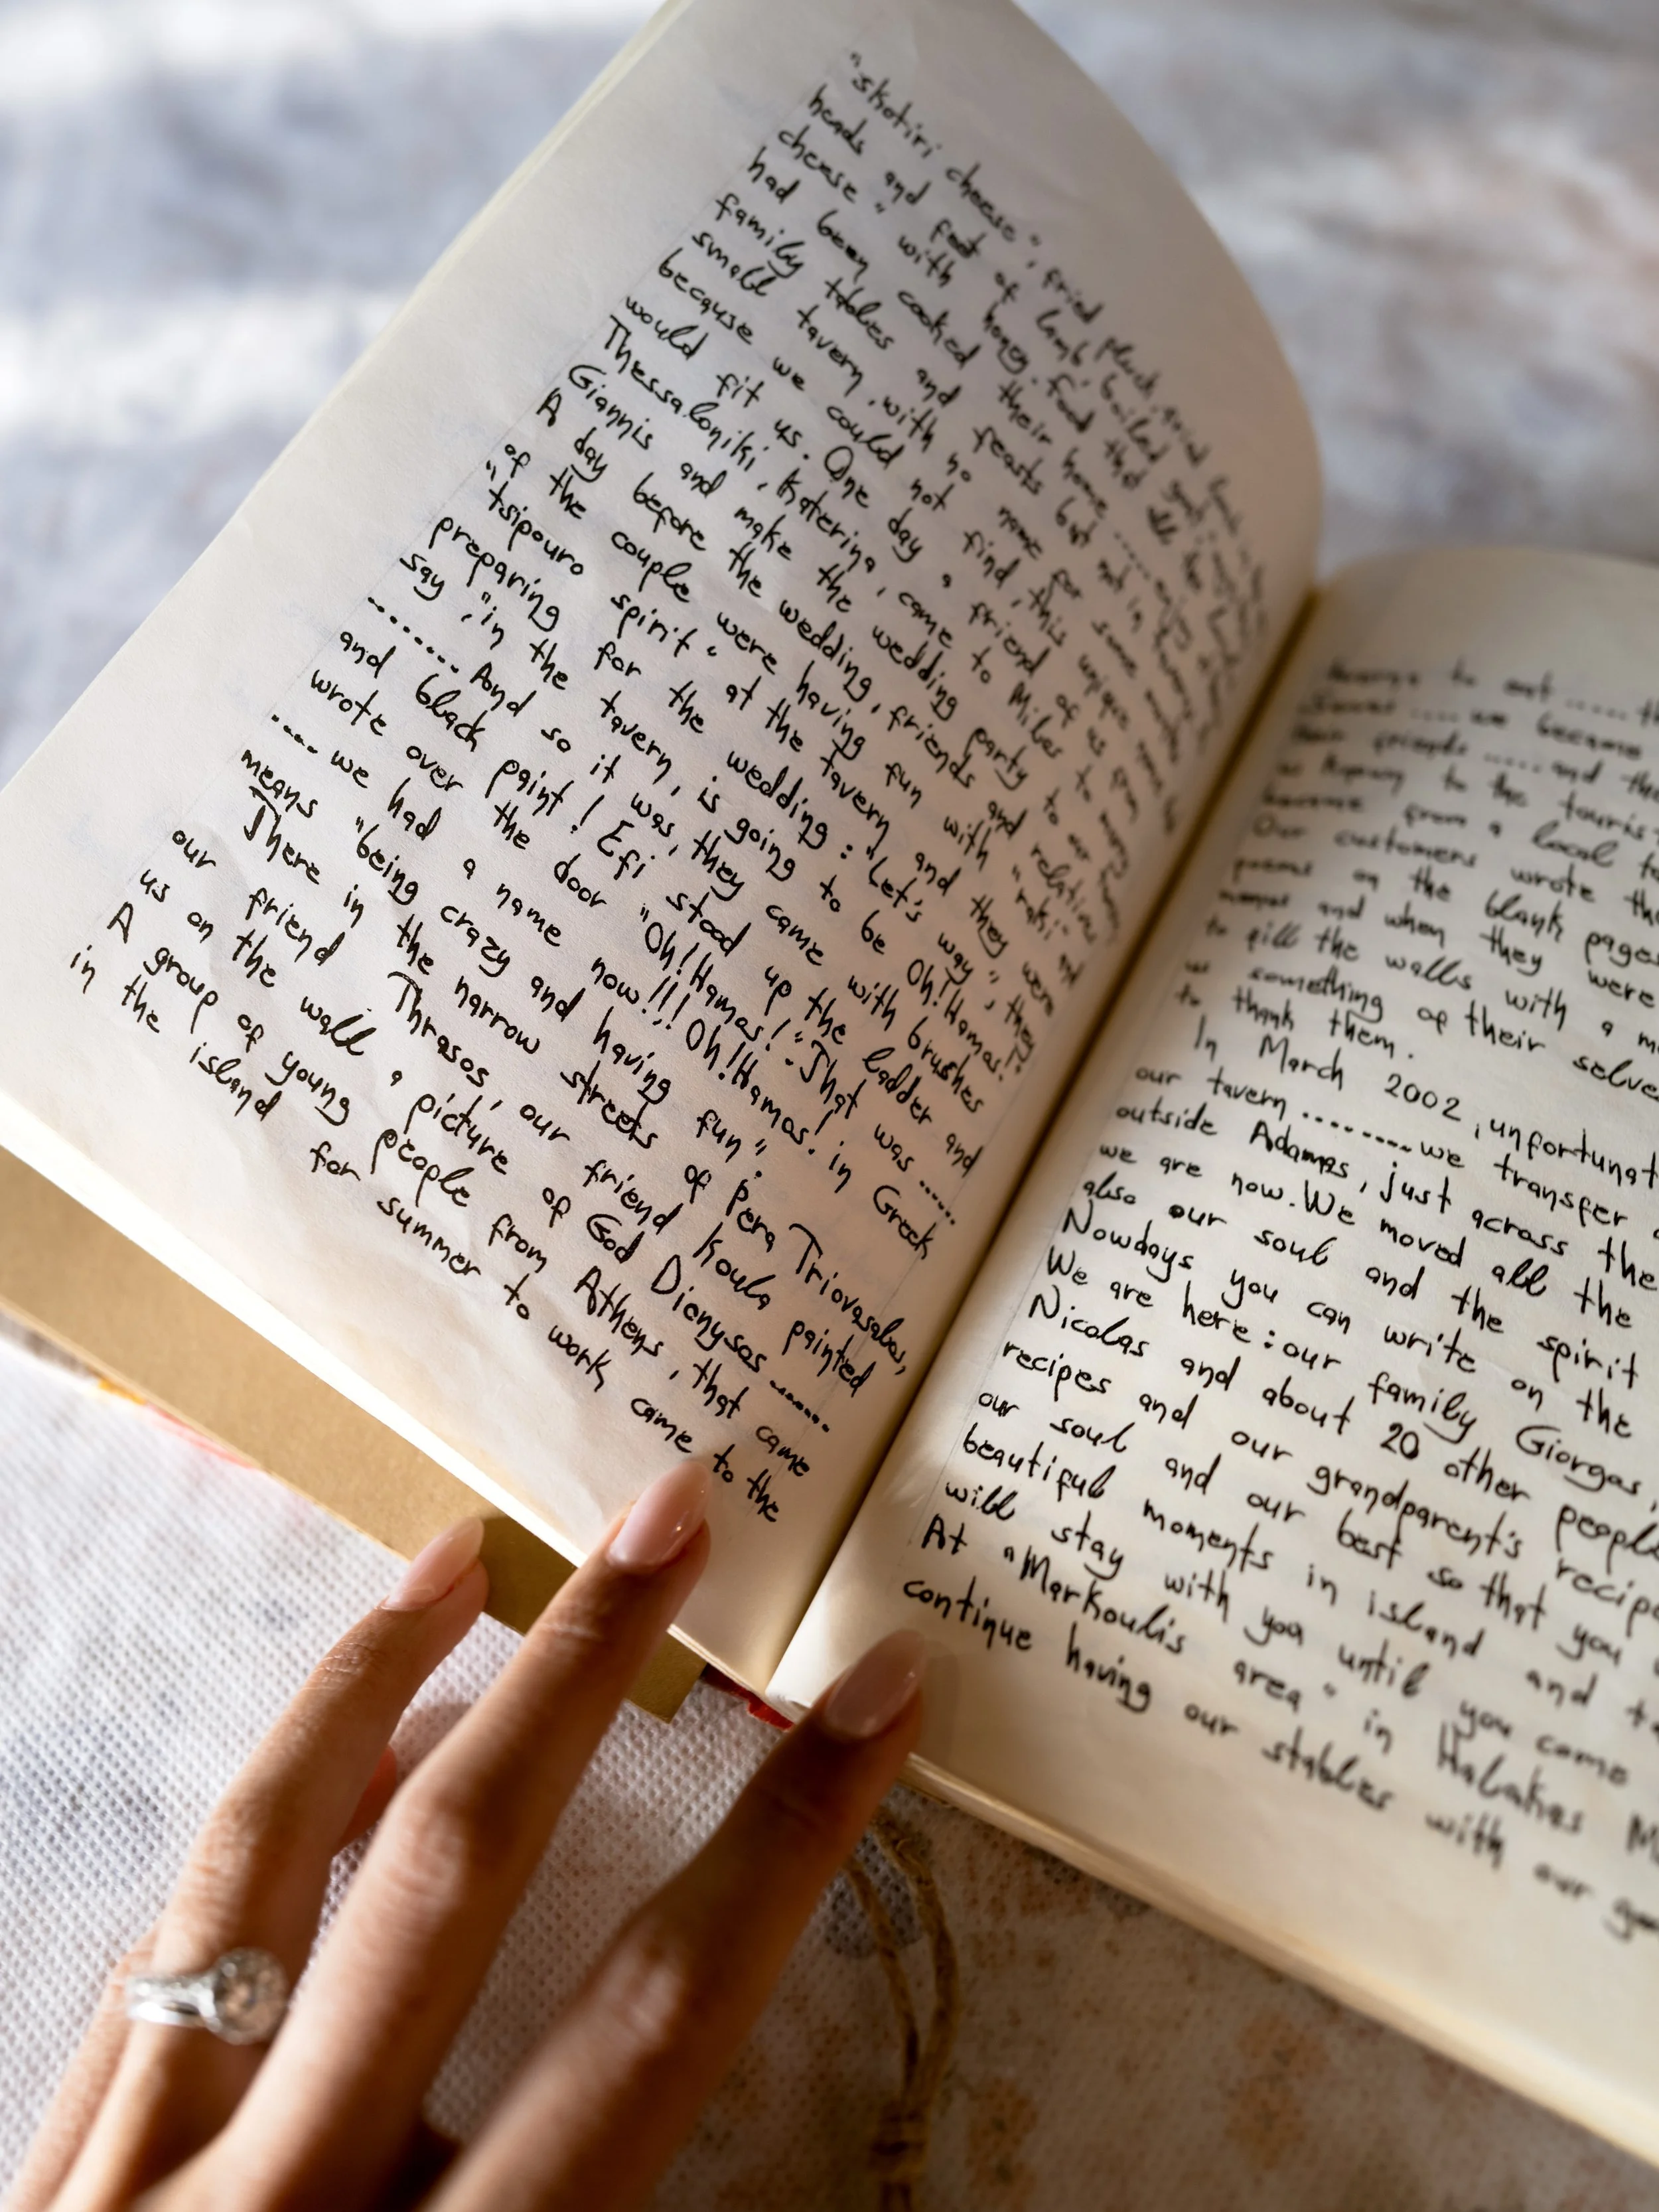 "skotiri cheese", fried pluck, goid
heads and feet of lamb, boiled goat,
cheese" with honey. Food that all the
had been cooked their home ......
family tables and feasts but not in
small tavern, with no name for some
because we could not find, this unique
would fit us. One day a friend of us from
Thessaloniki, Katerina, came to Milos to marry
Giannis and make the wedding party to our
A day before the wedding, friends and relatives
of the couple were having fun with "raki" and
"tsipouro spirit" at the tavern and they were
preparing for the wedding: "Let's way", they
say, "in the tavern, is going to be Oh! Hamos!
........ And so it was, they came with brushes
and black paint! Efi stood up the ladder and
wrote over the door "Oh! Hamos!". That was ......
.... we had a name now!!! Oh! Hamos! in Greek
means "being crazy and having fun".
There in the narrow streets of Pera Triovasalos,
our friend Thrasos, our friend Koula painted
us on the wall a picture of God Dionysos ........
A group of young people from Athens, that came
in the island for summer to work came to the
to eat ......
.... we became
friends ...... and
to the
from a local
Our customers wrote
poems on the blank pages
and when they were
to fill the walls with a
something of their selve
to thank them.
In March 2002, unfortunat
our tavern ........ we transfer
outside Adamas, just across the
we are now. We moved all the
also our soul and the spirit
Nowdays you can write on the
We are here: our family Giorgos,
Nicolas and about 20 other people
recipes and our grandparent's recip
our soul and our best so that you
beautiful moments in island and
will stay with you until you come
At "Markoulis area" in Halakas M
continue having our stables with our